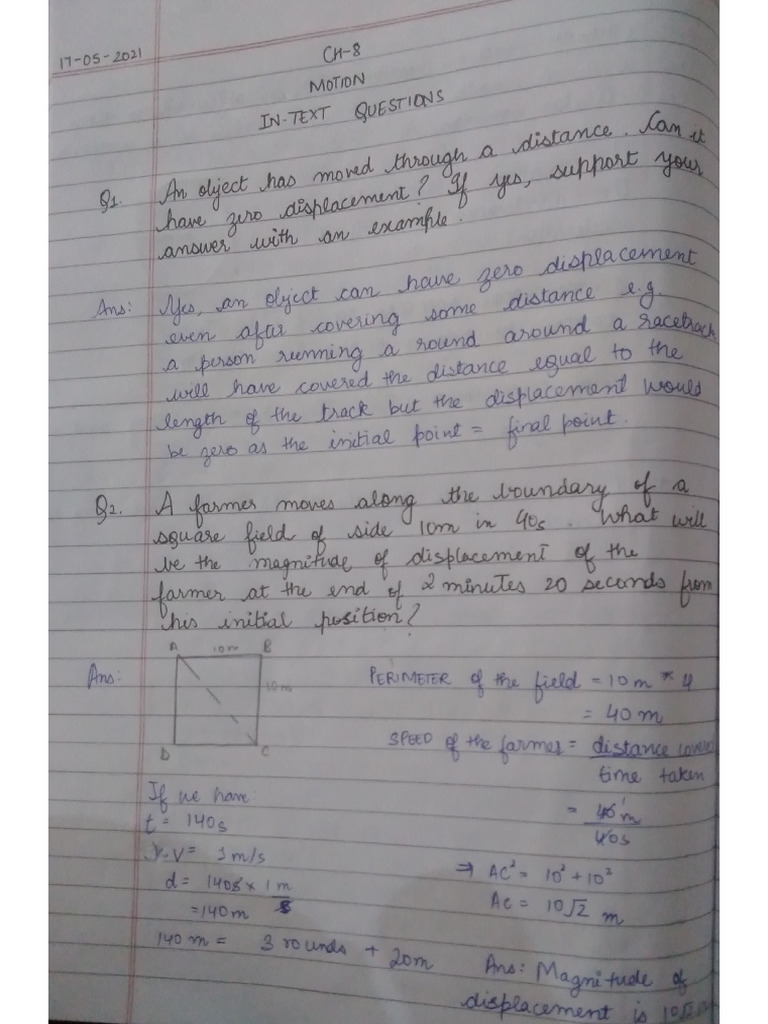 17-05-2021
CH-8
MOTION
IN-TEXT QUESTIONS
Q1. An object has moved through a distance. Can it
have zero displacement? If yes, support your
answer with an example.
Ans: Yes, an object can have zero displacement
even after covering some distance e.g.
a person running a round around a racetrack
will have covered the distance equal to the
length of the track but the displacement would
be zero as the initial point = final point.
Q2. A farmer moves along the boundary of a
square field of side 10m in 40s. What will
be the magnitude of displacement of the
farmer at the end of 2 minutes 20 seconds from
his initial position?
Ans:
A 10m B
10m
D C
PERIMETER of the field = 10m * 4
= 40m
SPEED of the farmer = distance cover
time taken
= 40 m
40s
If we have
t = 140s
V = 1m/s
d = 140s × 1 m
s
= 140m
140 m = 3 rounds + 20m
⇒ AC² = 10² + 10²
AC = 10√2 m
Ans: Magnitude of
displacement is 10√2